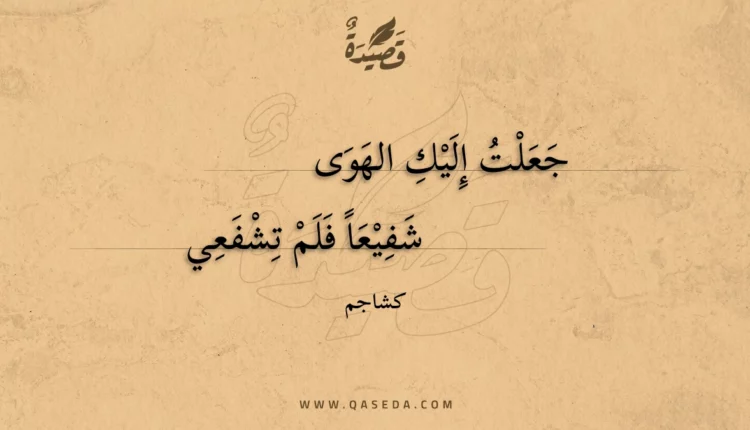 قَصِيْدَةٌ
جَعَلْتُ إِلَيْكِ الهَوَى
شَفِيْعَاً فَلَمْ تِشْفَعِي
كشاجم
WWW.QASEDA.COM